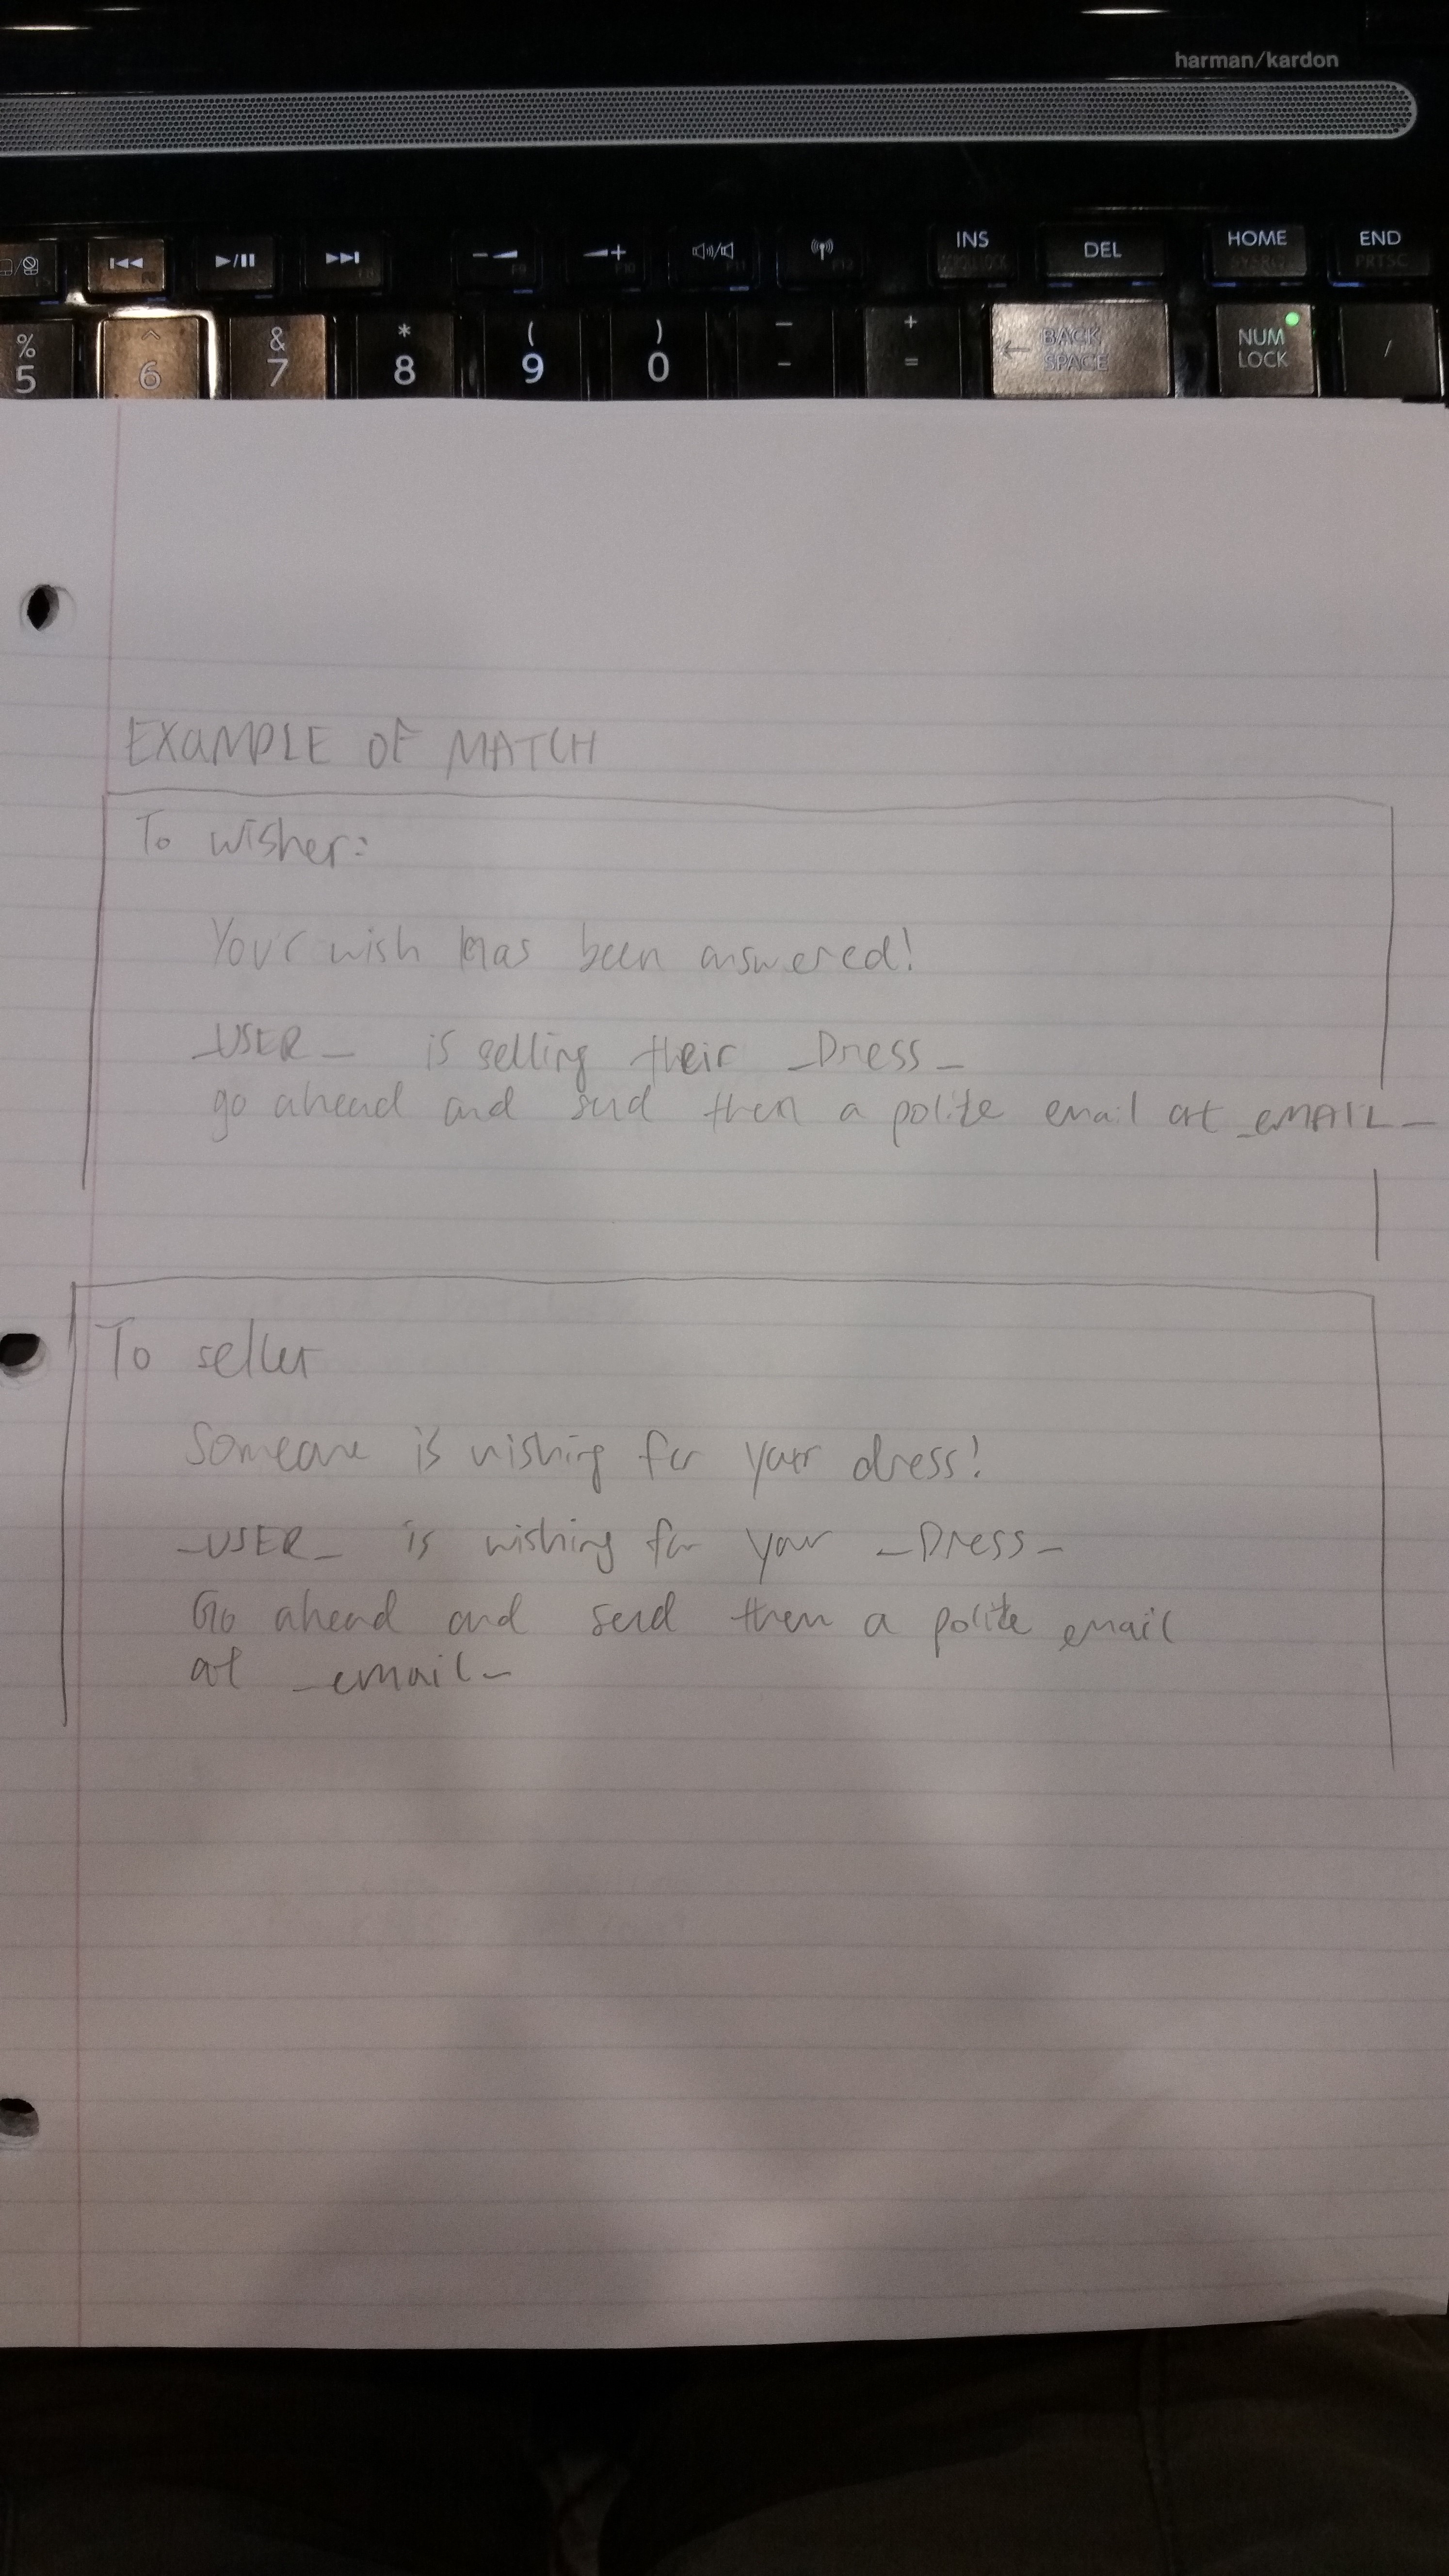 harman/kardon
INS DEL HOME END
PRTSC
% ^ & * ( ) — + BACK SPACE NUM LOCK /
5 6 7 8 9 0 - =
EXaMPLE OF MATCH
To wisher:
Your wish has been answered!
_USER_ is selling their _Dress_
go ahead and send them a polite email at _eMAIL_
To seller
Someone is wishing for your dress!
_USER_ is wishing for your _Dress_
Go ahead and send them a polite email
at _email_